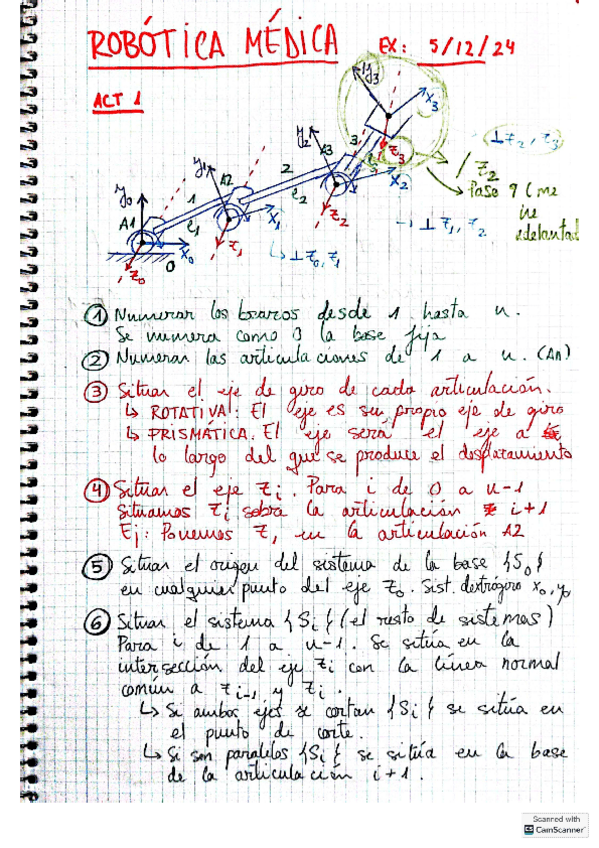 ROBÓTICA MÉDICA EX: 5/12/24
ACT 1
y3
x3
y2 A3 3
⊥ z2, z3
z3
z2
y1 A2 2
x2
Paso 9 (me
he
adelantad
y0 1 l2
z2 → ⊥ z1, z2
A1 l1 x1
z1
x0 ↳ ⊥ z0, z1
z0 0
① Numerar los brazos desde 1 hasta n.
Se numera como 0 la base fija
② Numerar las articulaciones de 1 a n. (An)
③ Situar el eje de giro de cada articulación.
↳ ROTATIVA: El eje es su propio eje de giro
↳ PRISMÁTICA. El eje será el eje a
lo largo del que se produce el desplazamiento
④ Situar el eje zi. Para i de 0 a n-1
Situamos zi sobra la articulación i+1
Ej: Ponemos z1 en la articulación A2
⑤ Situar el origen del sistema de la base {S0}
en cualquier punto del eje z0. Sist. dextrógiro x0, y0
⑥ Situar el sistema {Si} (el resto de sistemas)
Para i de 1 a n-1. Se sitúa en la
intersección del eje zi con la línea normal
común a zi-1 y zi.
↳ Si ambos ejes se cortan {Si} se sitúa en
el punto de corte.
↳ Si son paralelos {Si} se sitúa en la base
de la articulación i+1.
Scanned with
CamScanner